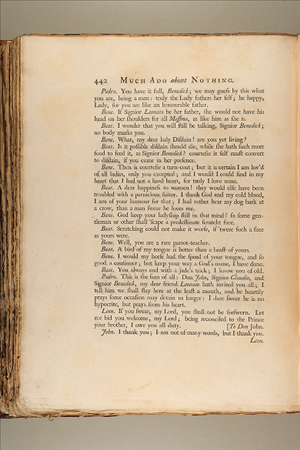 442 MUCH ADO about NOTHING.
Pedro. You have it full, Benedick; we may guess by this what
you are, being a man: truly the Lady fathers her self; be happy,
Lady, for you are like an honourable father.
Bene. If Signior Leonato be her father, she would not have his
head on her shoulders for all Messina, as like him as she is.
Beat. I wonder that you will still be talking, Signior Benedick;
no body marks you.
Bene. What, my dear lady Disdain! are you yet living?
Beat. Is it possible disdain should die, while she hath such meet
food to feed it, as Signior Benedick? courtesie it self must convert
to disdain, if you come in her presence.
Bene. Then is courtesie a turn-coat; but it is certain I am lov'd
of all ladies, only you excepted; and I would I could find in my
heart that I had not a hard heart, for truly I love none.
Beat. A dear happiness to women! they would else have been
troubled with a pernicious suitor. I thank God and my cold blood,
I am of your humour for that; I had rather hear my dog bark at
a crow, than a man swear he loves me.
Bene. God keep your ladyship still in that mind! so some gen-
tleman or other shall 'scape a predestinate scratcht face.
Beat. Scratching could not make it worse, if 'twere such a face
as yours were.
Bene. Well, you are a rare parrot-teacher.
Beat. A bird of my tongue is better than a beast of yours.
Bene. I would my horse had the speed of your tongue, and so
good a continuer; but keep your way o' God's name, I have done.
Beat. You always end with a jade's trick; I know you of old.
Pedro. This is the sum of all: Don John, Signior Claudio, and
Signior Benedick, my dear friend Leonato hath invited you all; I
tell him we shall stay here at the least a month, and he heartily
prays some occasion may detain us longer: I dare swear he is no
hypocrite, but prays from his heart.
Leon. If you swear, my Lord, you shall not be forsworn. Let
me bid you welcome, my Lord; being reconciled to the Prince
your brother, I owe you all duty. [To Don John.
John. I thank you; I am not of many words, but I thank you.
Leon.